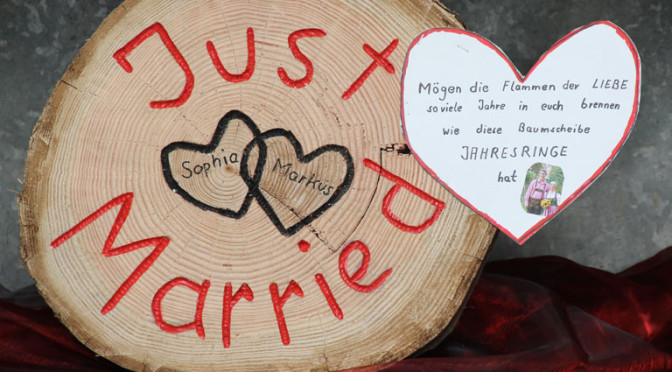 Just
Married
Sophia
Markus
Mögen die Flammen der LIEBE
so viele Jahre in euch brennen
wie diese Baumscheibe
JAHRESRINGE
hat